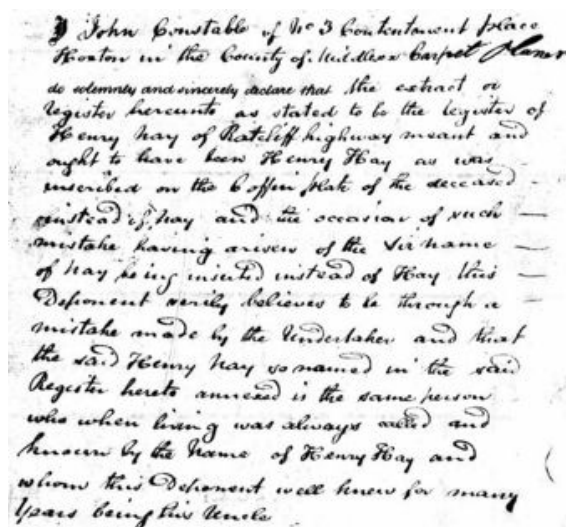 I John Constable of No 3 Contentment place
Hoxton in the County of Middlesex Carpet planer
do solemnly and sincerely declare that the extract or
register hereunto as stated to be the register of
Henry Nay of Ratcliff highway meant and
ought to have been Henry Hay as was
inscribed on the Coffin plate of the deceased
instead of Nay and the occasion of such
mistake having arisen of the Sirname
of Nay being inserted instead of Hay this
Deponent verily believes to be through a
mistake made by the Undertaker and that
the said Henry Nay so named in the said
Register hereto annexed is the same person
who when living was always called and
known by the Name of Henry Hay and
whom this Deponent well knew for many
Years being his Uncle